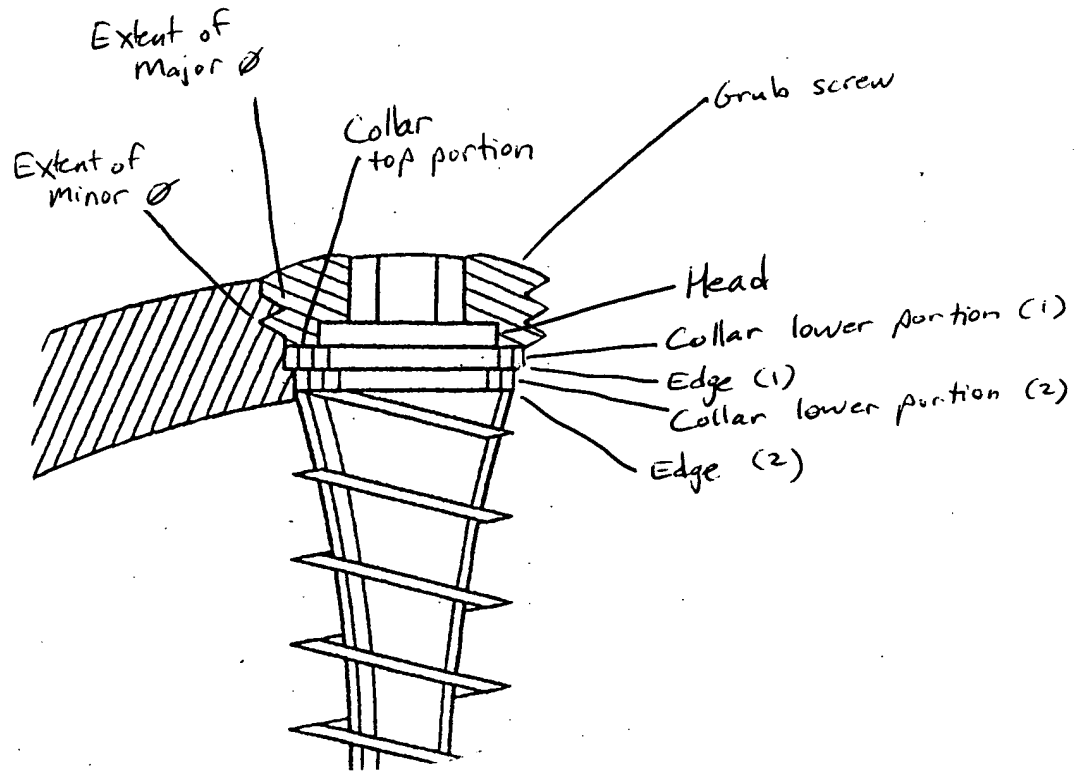 Extent of
Major Ø
Grub screw
Collar
top portion
Extent of
Minor Ø
Head
Collar lower portion (1)
Edge (1)
Collar lower portion (2)
Edge (2)